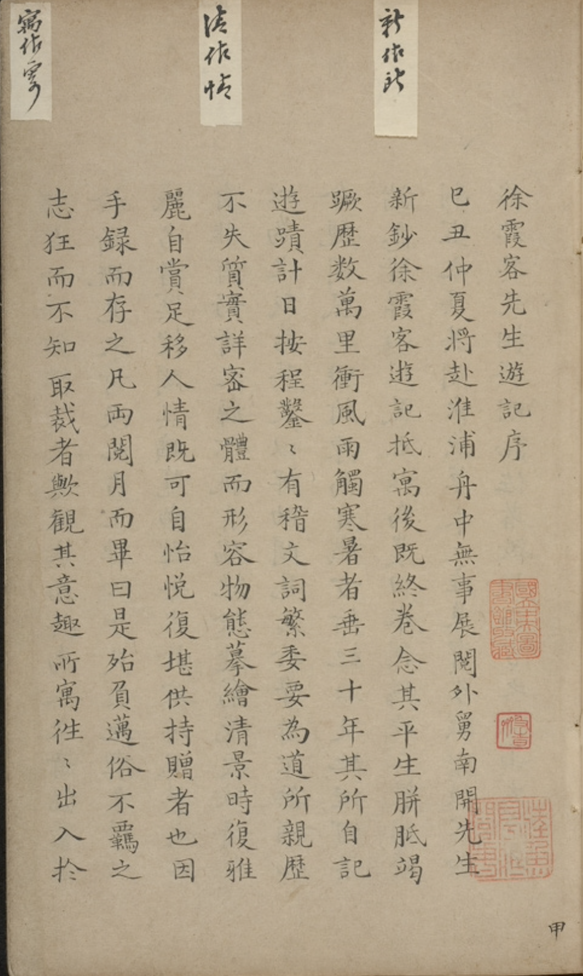 徐霞客先生遊記序
巳丑仲夏將赴淮浦舟中無事展閱外舅南開先生
新鈔徐霞客遊記抵寓後既終卷念其平生胼胝竭
蹶歷数萬里衝風雨觸寒暑者垂三十年其所自記
遊蹟計日按程鑿〻有稽文詞繁委要為道所親歷
不失質實詳密之體而形容物態摹繪清景時復雅
麗自賞足移人情既可自怡悅復堪供持贈者也因
手録而存之凡兩閱月而畢曰是殆負邁俗不羈之
志狂而不知取裁者歟觀其意趣所寓徃〻出入於
甲